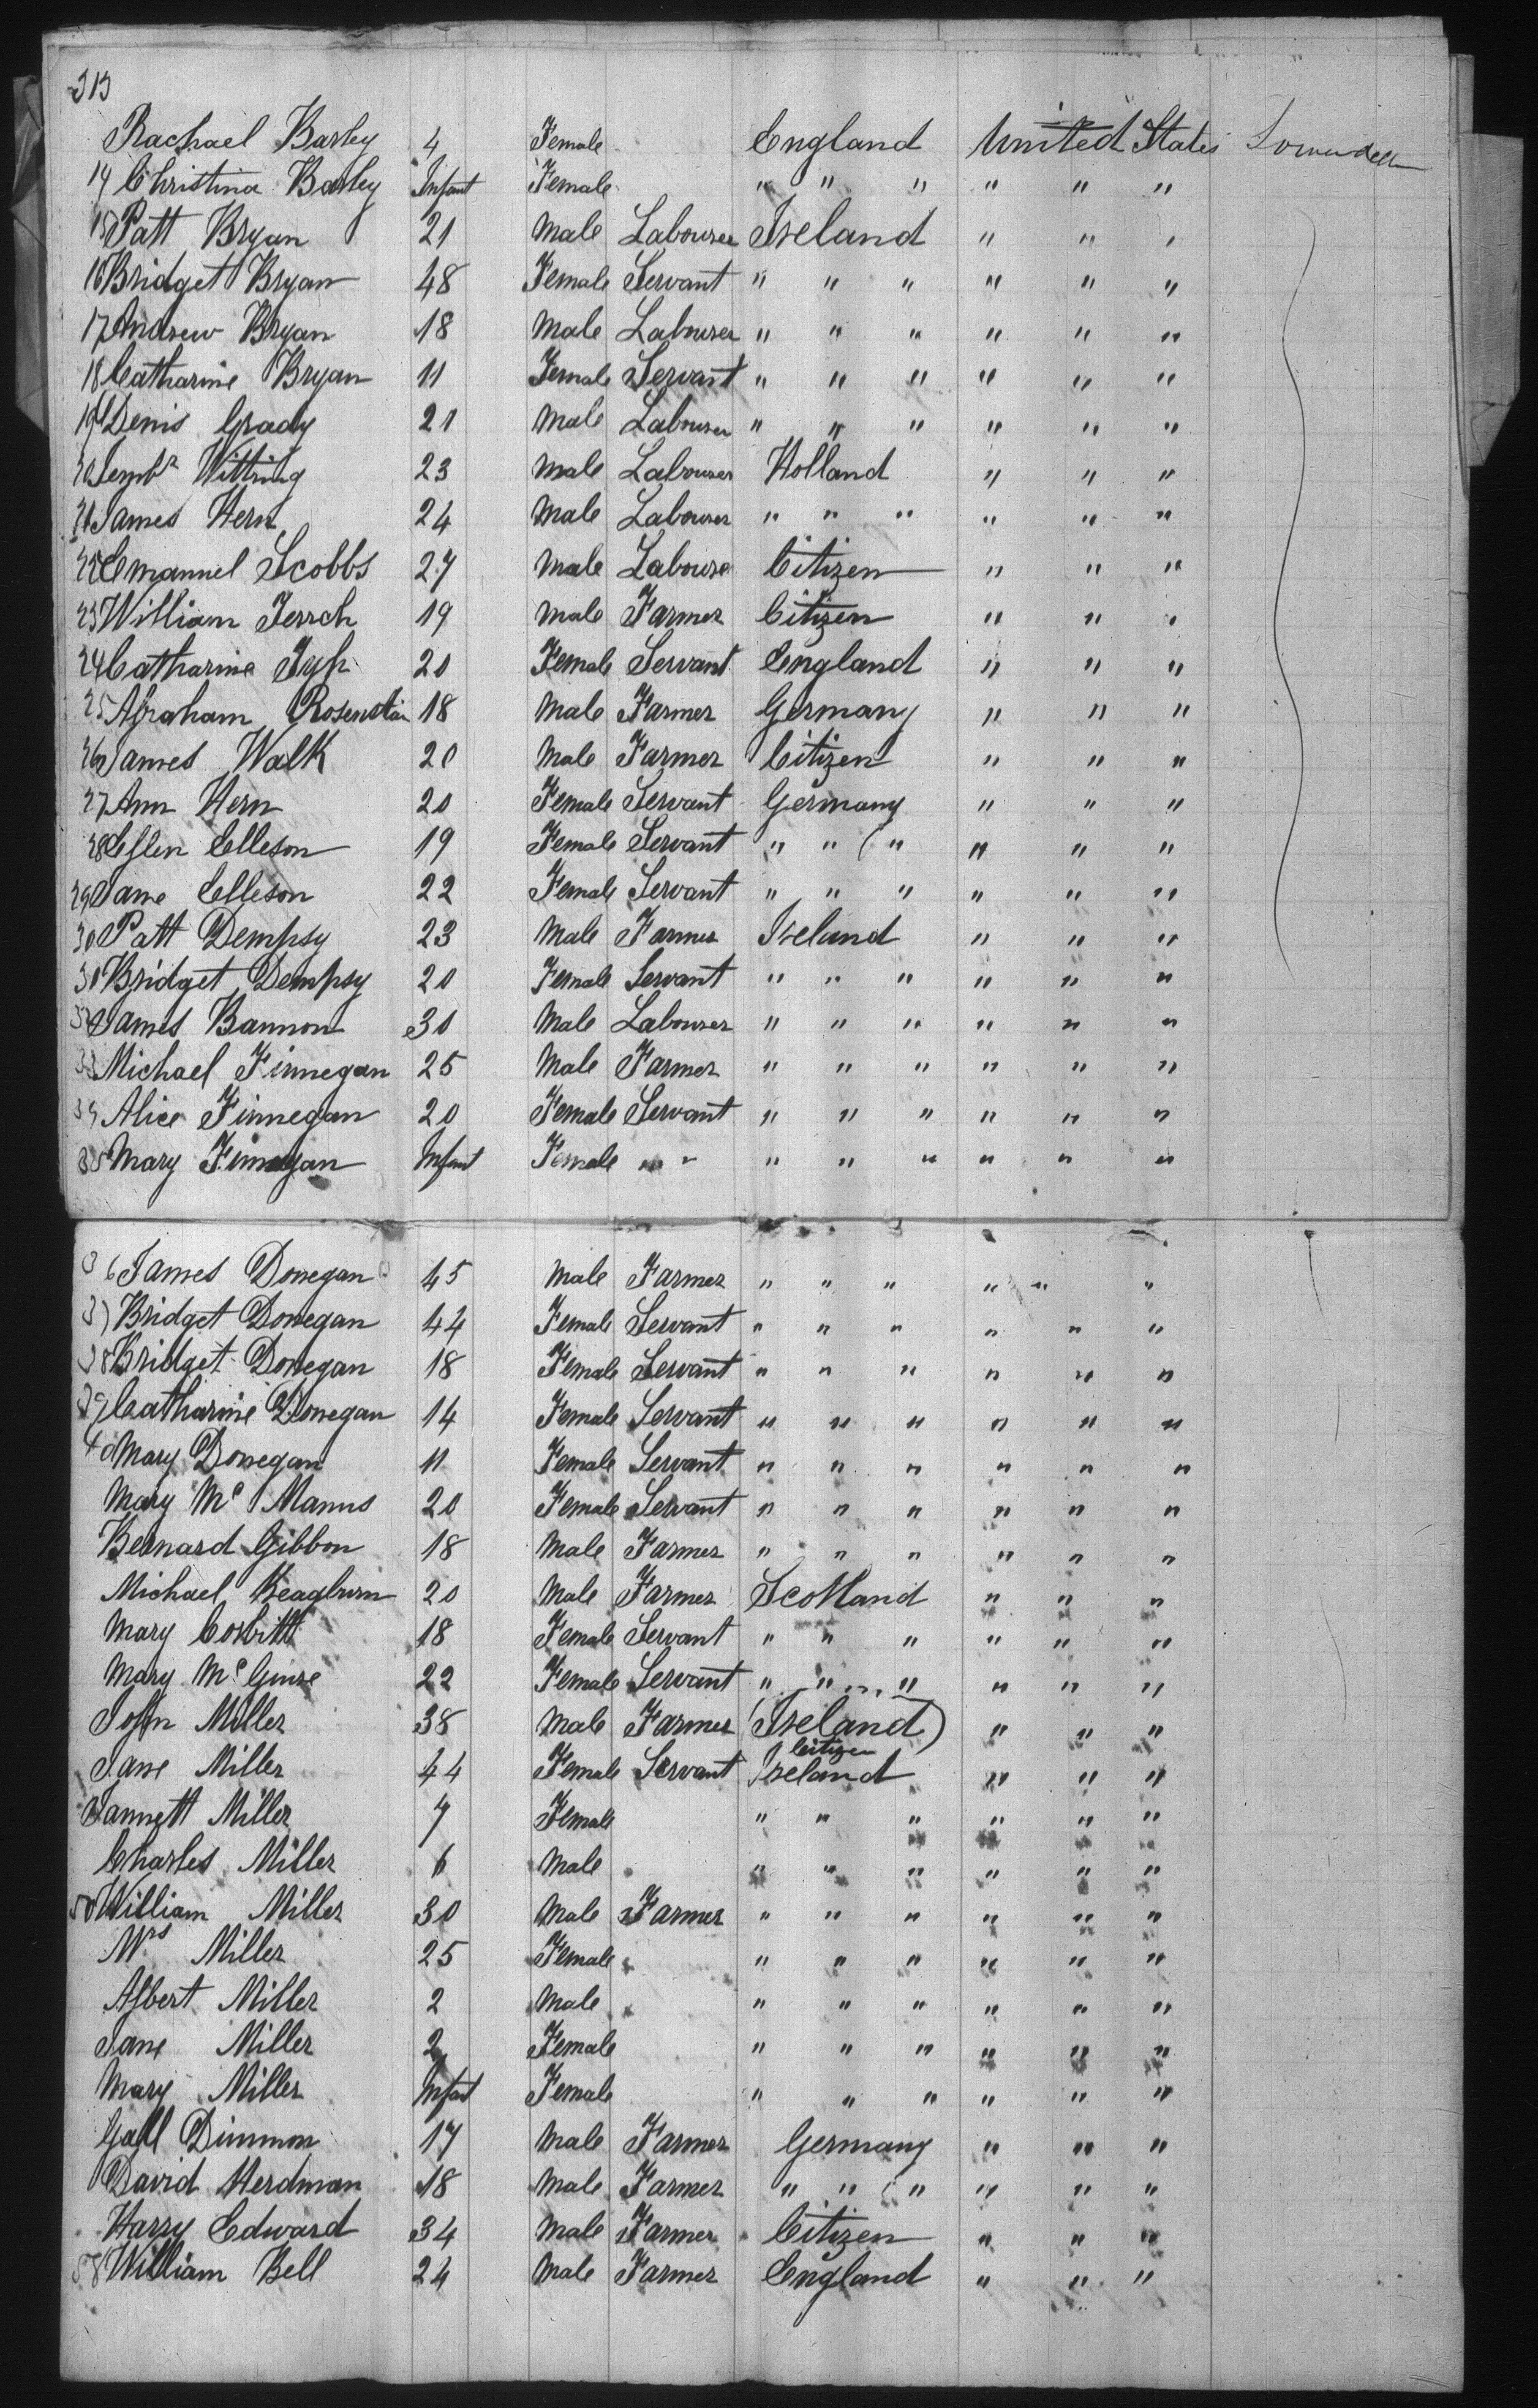 313
Rachael Barley 4 Female England United States
14 Christina Barley Infant Female " " " " " "
15 Patt Bryan 21 Male Labourer Ireland " " "
16 Bridget Bryan 48 Female Servant " " " " " "
17 Andrew Bryan 18 Male Labourer " " " " " "
18 Catharine Bryan 11 Female Servant " " " " " "
19 Denis Grady 21 Male Labourer " " " " " "
20 Wittring 23 Male Labourer Holland " " "
21 James Hern 24 Male Labourer " " " " " "
22 Emannel Scobbs 27 Male Laboure Citizen " " "
23 William Jerrch 19 Male Farmer Citizen " " "
24 Catharine 20 Female Servant England " " "
25 Abraham Rosenstin 18 Male Farmer Germany " " "
26 James Walk 20 Male Farmer Citizen " " "
27 Ann Hern 20 Female Servant Germany " " "
28 Ellen Elleson 19 Female Servant " " " " " "
29 Jane Elleson 22 Female Servant " " " " " "
30 Patt Dempsy 23 Male Farmer Ireland " " "
31 Bridget Dempsy 20 Female Servant " " " " " "
32 James Bannon 30 Male Labourer " " " " " "
33 Michael Finnegan 25 Male Farmer " " " " " "
34 Alice Finnegan 20 Female Servant " " " " " "
35 Mary Finnegan Infant Female " " " " " " " "
36 James Donegan 45 Male Farmer " " " " " "
37 Bridget Donegan 44 Female Servant " " " " " "
38 Bridget Donegan 18 Female Servant " " " " " "
39 Catharine Donegan 14 Female Servant " " " " " "
40 Mary Donegan 11 Female Servant " " " " " "
Mary Mc Manus 20 Female Servant " " " " " "
Bernard Gibbon 18 Male Farmer " " " " " "
Michael Keaghurn 20 Male Farmer Scotland " " "
Mary Corbitt 18 Female Servant " " " " " "
Mary Mc Guire 22 Female Servant " " " " " "
John Miller 38 Male Farmer (Ireland) " " "
Citizen
Jane Miller 44 Female Servant Ireland " " "
Jannett Miller 7 Female " " " " " "
Charles Miller 6 Male " " " " " "
50 William Miller 30 Male Farmer " " " " " "
Mrs Miller 25 Female " " " " " "
Albert Miller 2 Male " " " " " "
Jane Miller 2 Female " " " " " "
Mary Miller Infant Female " " " " " "
Gall Dimmon 17 Male Farmer Germany " " "
David Herdman 18 Male Farmer " " " " " "
Harry Edward 34 Male Farmer Citizen " " "
58 William Bell 24 Male Farmer England " " "